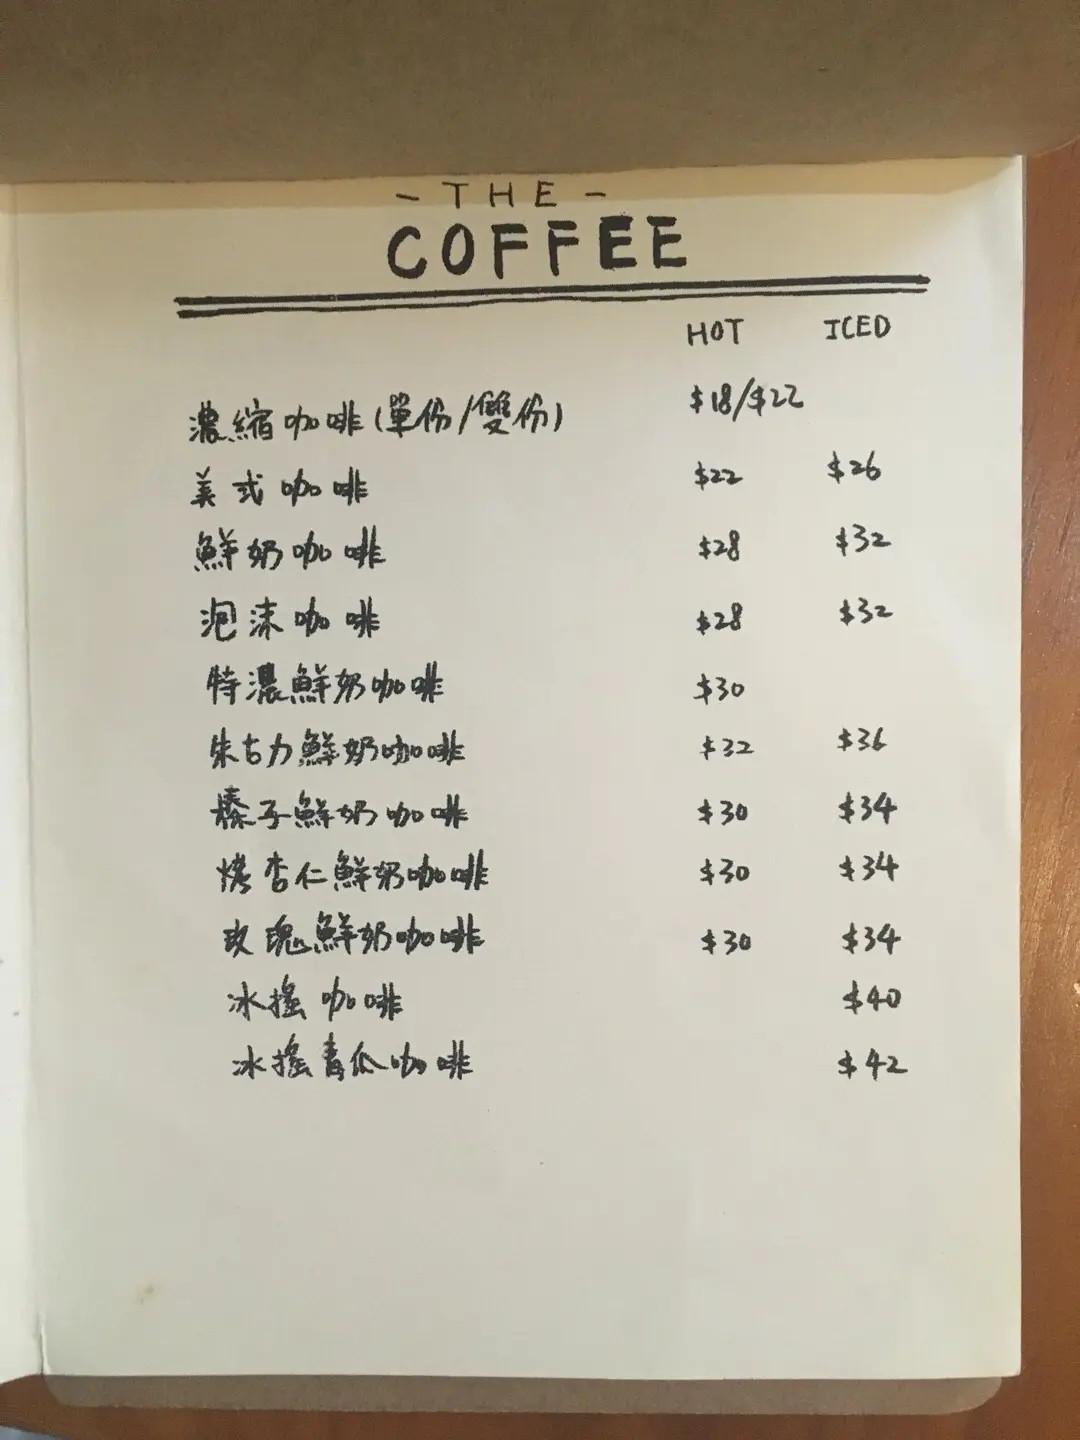 - THE -
COFFEE
HOT ICED
濃縮咖啡(單份/雙份) $18/$22
美式咖啡 $22 $26
鮮奶咖啡 $28 $32
泡沫咖啡 $28 $32
特濃鮮奶咖啡 $30
朱古力鮮奶咖啡 $32 $36
榛子鮮奶咖啡 $30 $34
烤杏仁鮮奶咖啡 $30 $34
玫瑰鮮奶咖啡 $30 $34
冰搖咖啡 $40
冰搖青瓜咖啡 $42